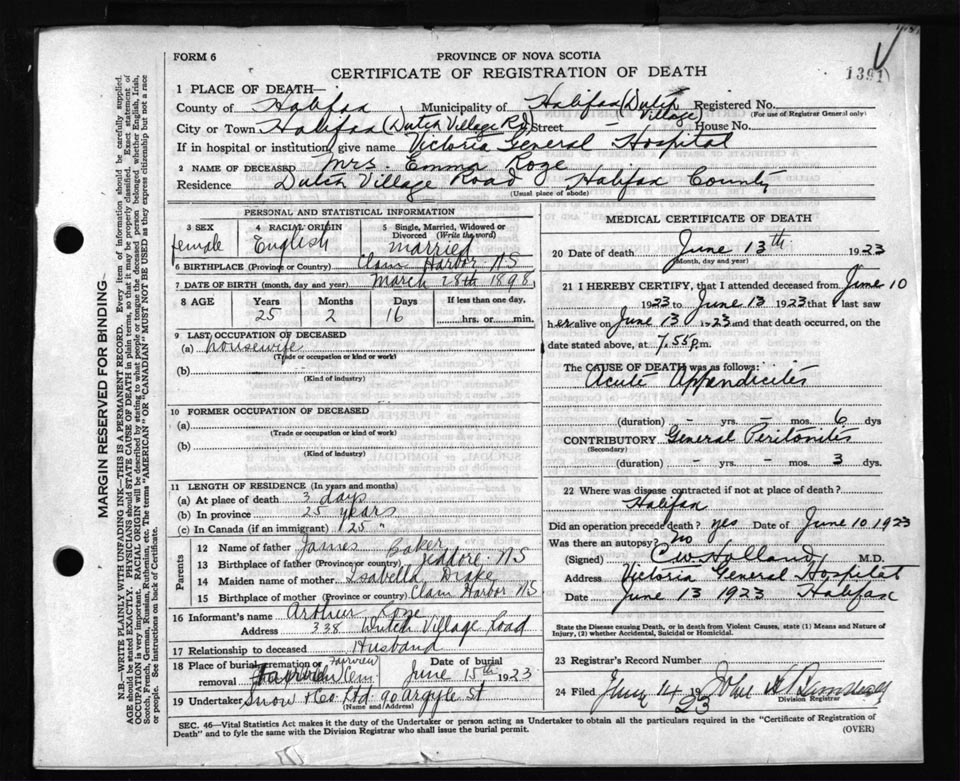 FORM 6
PROVINCE OF NOVA SCOTIA
CERTIFICATE OF REGISTRATION OF DEATH
1391
1 PLACE OF DEATH—
County of Halifax Municipality of Halifax (Dutch Village) Registered No.
(For use of Registrar General only)
City or Town Halifax (Dutch Village Rd) Street — House No.
If in hospital or institution, give name Victoria General Hospital
2 NAME OF DECEASED Mrs. Emma Roze
Residence Dutch Village Road Halifax County
(Usual place of abode)
PERSONAL AND STATISTICAL INFORMATION
3 SEX 4 RACIAL ORIGIN 5 Single, Married, Widowed or Divorced (Write the word)
female English married
6 BIRTHPLACE (Province or Country) Clam Harbor NS
7 DATE OF BIRTH (month, day and year) March 28th 1898
8 AGE Years Months Days If less than one day,
25 2 16 hrs. or min.
9 LAST OCCUPATION OF DECEASED
(a) housewife
(Trade or occupation or kind or work)
(b)
(Kind of industry)
10 FORMER OCCUPATION OF DECEASED
(a)
(Trade or occupation or kind of work)
(b)
(Kind of industry)
11 LENGTH OF RESIDENCE (In years and months)
(a) At place of death 3 days
(b) In province 25 years
(c) In Canada (if an immigrant) 25 "
Parents
12 Name of father James Baker
13 Birthplace of father (Province or Country) Jeddore NS
14 Maiden name of mother Isabella Drake
15 Birthplace of mother (Province or country) Clam Harbor NS
16 Informant's name Arthur Roze
Address 338 Dutch Village Road
17 Relationship to deceased Husband
18 Place of burial, cremation or removal Fairview Cem Date of burial June 15th 1923
19 Undertaker Snow & Co. Ltd 90 Argyle St
(Name and Address)
MEDICAL CERTIFICATE OF DEATH
20 Date of death June 13th 1923
(Month, day and year)
21 I HEREBY CERTIFY, that I attended deceased from June 10
1923 to June 13 1923 that I last saw
her alive on June 13 1923 and that death occurred, on
date stated above, at 7.55 p.m.
The CAUSE OF DEATH was as follows:
Acute Appendicites
(duration) – yrs. – mos. 6 dys
CONTRIBUTORY General Peritonites
(Secondary)
(duration) – yrs. – mos. 3 dys.
22 Where was disease contracted if not at place of death?
Halifax
Did an operation precede death? yes Date of June 10 1923
Was there an autopsy? No
(Signed) C.W. Holland M.D.
Address Victoria General Hospital
Date June 13 1923 Halifax
State the Disease causing Death, or in death from Violent Causes, state (1) Means and Nature of Injury, (2) whether Accidental, Suicidal or Homicidal.
23 Registrar's Record Number
24 Filed June 14 1923 John
Division Registrar
SEC. 46—Vital Statistics Act makes it the duty of the Undertaker or person acting as Undertaker to obtain all the particulars required in the "Certificate of Registration of
Death" and to fyle the same with the Division Registrar who shall issue the burial permit.
(OVER)
MARGIN RESERVED FOR BINDING
N.B.—WRITE PLAINLY WITH UNFADING INK—THIS IS A PERMANENT RECORD. Every item of information should be carefully supplied.
AGE should be stated EXACTLY. PHYSICIANS should STATE CAUSE OF DEATH in plain terms, so that it may be properly classified. Exact statement of
OCCUPATION is very important. RACIAL ORIGIN will be described by stating to what people or tongue the deceased person belonged whether English, Irish,
Scotch, French, German, Russian, Ruthenian, etc. The terms "AMERICAN" OR "CANADIAN" MUST NOT BE USED as they express citizenship but not a race
or people. See instructions on back of Certificate.